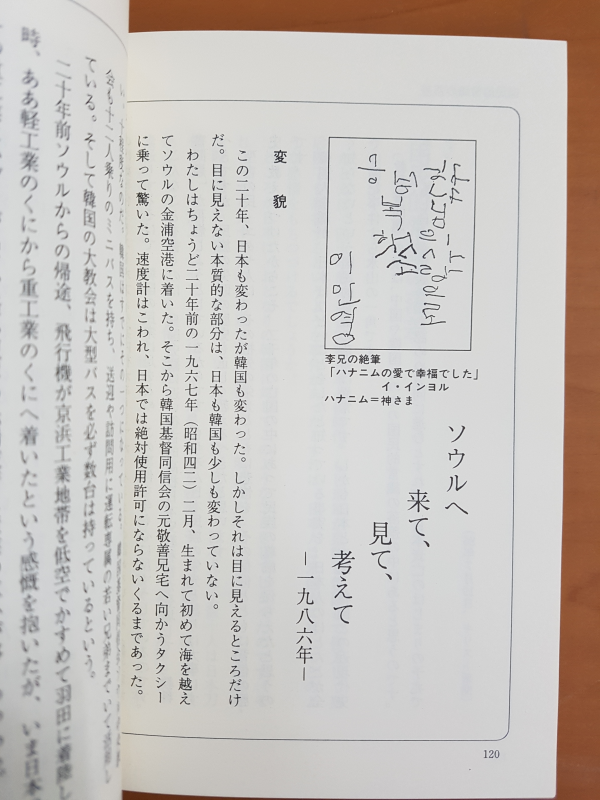 ソウルへ
来て、
見て、
考えて
―一九八六年―
李兄の絶筆
「ハナニムの愛で幸福でした」
イ・インヨル
ハナニム＝神さま
変貌
この二十年、日本も変わったが韓国も変わった。しかしそれは目に見えるところだけ
だ。目に見えない本質的な部分は、日本も韓国も少しも変わっていない。
わたしはちょうど二十年前の一九六七年（昭和四二）二月、生まれて初めて海を越え
てソウルの金浦空港に着いた。そこから韓国基督同信会の元敬善兄宅へ向かうタクシー
に乗って驚いた。速度計はこわれ、日本では絶対使用許可にならないくるまであった。
会も十二人乗りのミニバスを持ち、送迎や訪問用に運転専属の若い兄弟までいて
ている。そして韓国の大教会は大型バスを必ず数台は持っているという。
二十年前ソウルからの帰途、飛行機が京浜工業地帯を低空でかすめて羽田に着陸し
時、ああ軽工業のくにから重工業のくにへ着いたという感慨を抱いたが、いま日本
120